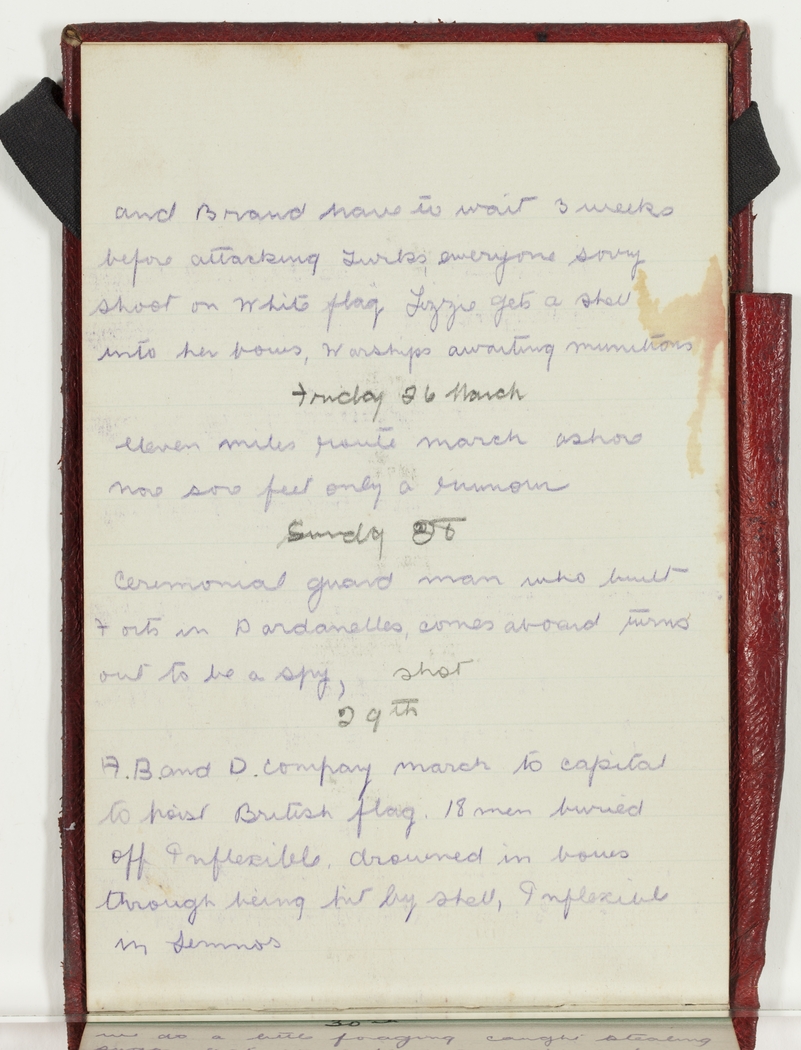 and Brand have to wait 3 weeks
before attacking Turks, everyone sorry
shoot on White flag Lizzie gets a shell
into her bows, Warships awaiting munitions
Friday 26 March
eleven miles route march ashore
nor sore feet only a rumour
Sunday 28
Ceremonial guard man who built
Forts in Dardanelles, comes aboard turns
out to be a spy, shot
29th
A.B. and D. Compay march to capital
to hoist British flag. 18 men buried
off Inflexible. drowned in bows
through being hit by shell, Inflexible
in Lemnos
30th
we do a little foraging caught stealing